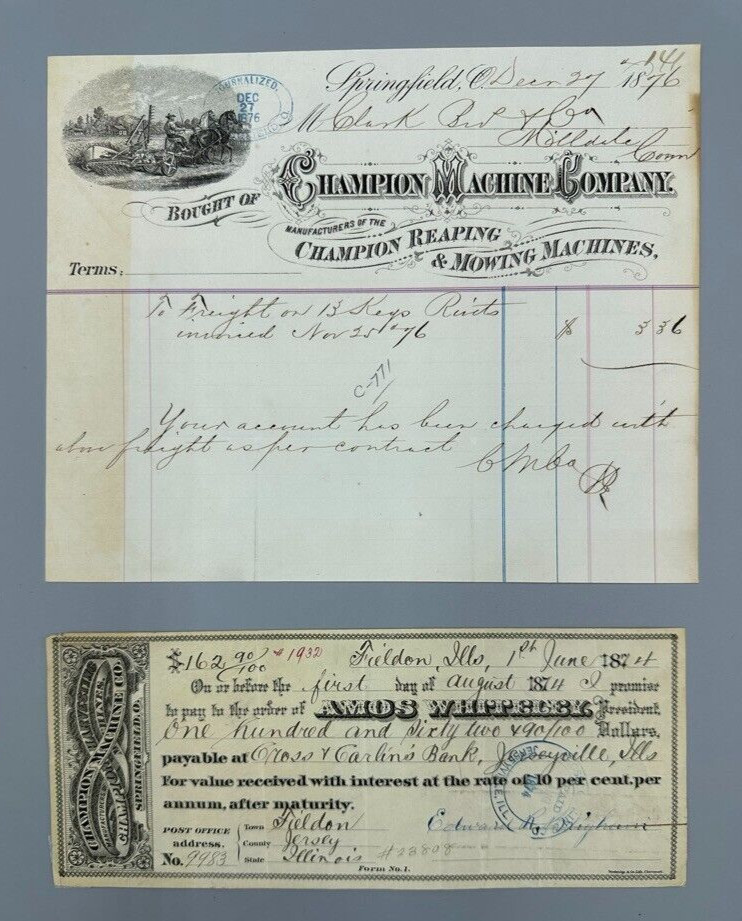 141
Springfield, O. Decr 27 1876
JOURNALIZED.
DEC
27
1876
M Clark Bro & Co
Milldale Conn
BOUGHT OF CHAMPION MACHINE COMPANY.
MANUFACTURERS OF THE
CHAMPION REAPING
& MOWING MACHINES,
Terms:
To Freight on 13 Kegs Rivts
invoiced Nov 25th 76 $ 3 36
C-771
Your account has been charged with
above freight as per contract
CMCo
$162 90/100 1932 Fieldon, Ills, 1st June 1874
On or before the first day of August 1874 I promise
to pay to the order of AMOS WHITELEY, President,
One hundred and Sixty two & 90/100 Dollars,
payable at Cross & Carlin's Bank, Jerseyville, Ills
For value received with interest at the rate of 10 per cent. per
annum, after maturity.
PAID
JERSEYVILLE, ILL.
1874
Edward
POST OFFICE address.
Town Fieldon
County Jersey
State Illinois
No. 9983
#23808
Form No. 1.
CHAMPION MACHINE CO.
SPRINGFIELD, O.